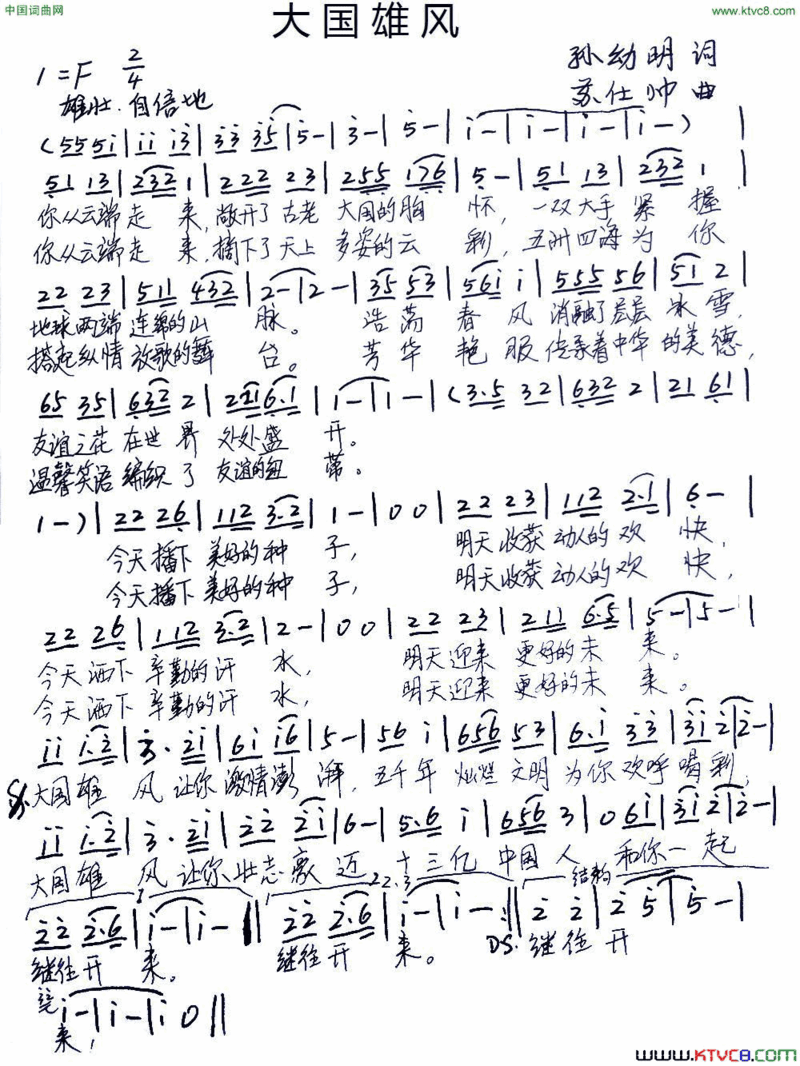 中国词曲网
大国雄风
www.ktvc8.com
1=F 2/4
孙幼明 词
雄壮.自信地
苏仕帅 曲
(55 5i|ii i3|33 35|5-|3-|5-|i-|i-|i-|i-)|
51 13|232 1|222 23|255 176|5-|51 13|232 1|
你从云端走 来,敞开了古老 大国的胸 怀,一双大手 紧 握
你从云端走 来,摘下了天上 多姿的云 彩,五洲四海为 你
22 23|511 432|2-|2-|35 53|561 i|555 56|51 2|
地球两端 连绵的山 脉。 浩荡 春 风 消融了层层 冰 雪,
搭起纵情 放歌的舞 台。 芳华 艳 服 传承着中华 的美德,
65 35|632 2|211 6.1|1-|1-|(3.5 32|632 2|21 61|
友谊之花 在世 界 处处盛 开。
温馨笑语 编织 了 友谊的纽 带。
1-)|22 26|112 3.2|1-|00|22 23|112 2.1|6-|
今天播下 美好的种 子, 明天收获 动人的欢 快,
今天播下 美好的种 子, 明天收获 动人的欢 快,
22 26|112 3.2|2-|00|22 23|211 6.5|5-|5-|
今天洒下 辛勤的汗 水, 明天迎来 更好的未 来。
今天洒下 辛勤的汗 水, 明天迎来 更好的未 来。
ii i.2|3. 2i|6i i6|5-|56 i|656 53|6.i 33|3i 2|2-|
大国雄 风 让你 激情澎 湃, 五千年 灿烂 文明 为你 欢呼 喝彩;
ii i.2|3. 2i|22 2i|6-|5.6 i|656 3|0 6i|3i 2|2-|
大国雄 风 让你 壮志豪 迈 十三亿 中国 人 和你一 起
1. 22.3 结构
22 2.6|i-|i-||22 2.6|i-|i-:||2 2|2 5|5-|
继往开 来。 继往开 来。 DS. 继往开
i-|i-|i 0||
来!
www.KTVC8.com